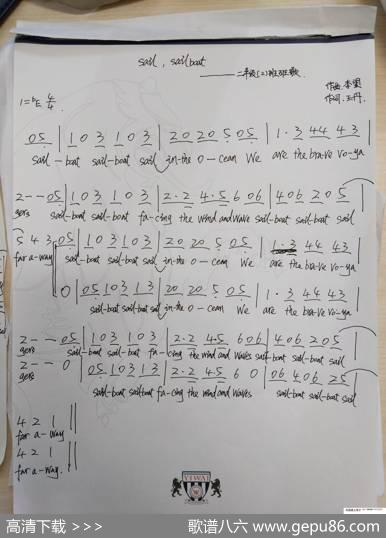 sail, sailboat
——二年级(2)班班歌
作曲:李昱
作词:王丹
1=♭E 4/4
05 | 103 103 | 20 20 5 05 | 1·3 44 43 |
sail-boat sail-boat sail in-the o-cean We are the bra-ve vo-ya
2--05 | 103 103 | 2·2 4·5 6 06 | 406 205 |
gers sail-boat sail-boat fa-cing the wind and wave sail-boat sail-boat sail
5 4 3 05 | 103 103 | 20 20 5 05 | 1·3 44 43 |
far a-way sail-boat sail-boat sail in-the o-cean We are the bra-ve vo-ya
0 | 05 103 13 | 20 20 5 05 | 1·3 44 43 |
sail-boat sail-boat sail in-the o-cean We are the bra-ve vo-ya
2--05 | 103 103 | 2·2 45 606 | 406 205 |
gers sail-boat sail-boat fa-cing the wind and waves sail-boat sail-boat sail
2--0 | 05 103 13 | 2·2 45 6 0 | 06 406 25 |
gers sail-boat sailboat fa-cing the wind and waves sail-boat sail-boat sail
4 2 1 ||
far a-way
4 2 1 ||
far a-way.
YIWAI
高清下载 >>>
歌谱八六 www.gepu86.com